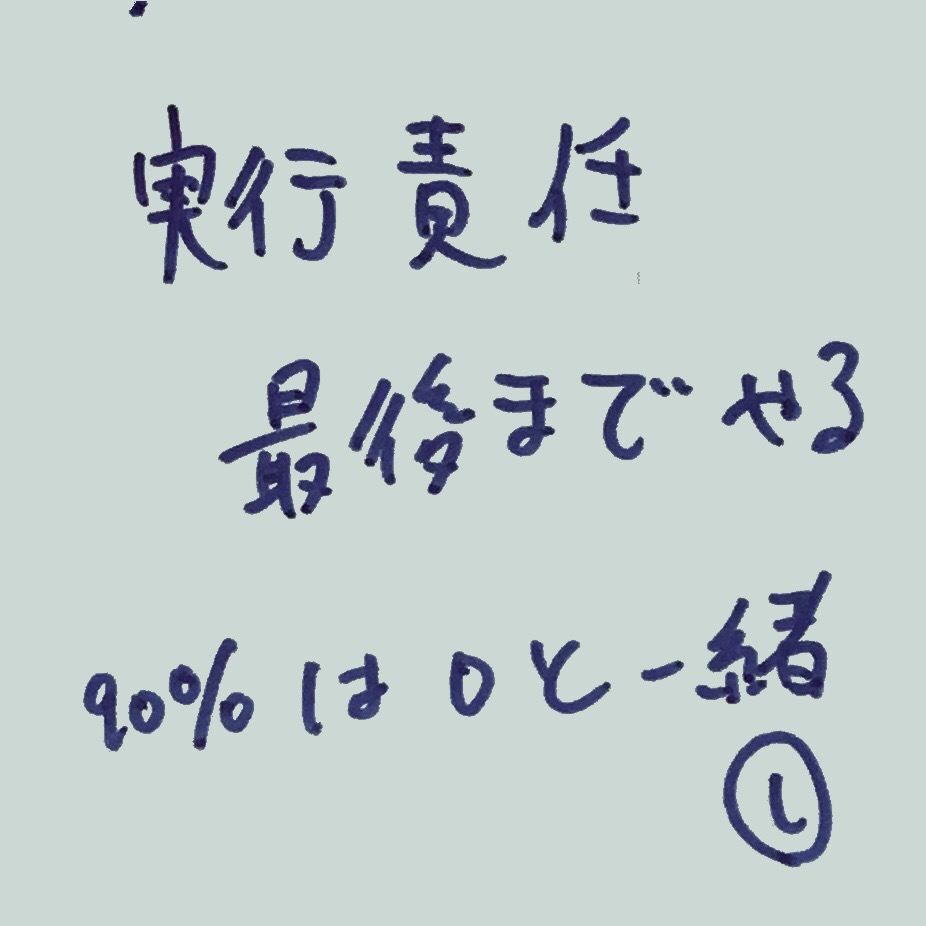 実行責任
最後までやる
90%は0と一緒
し